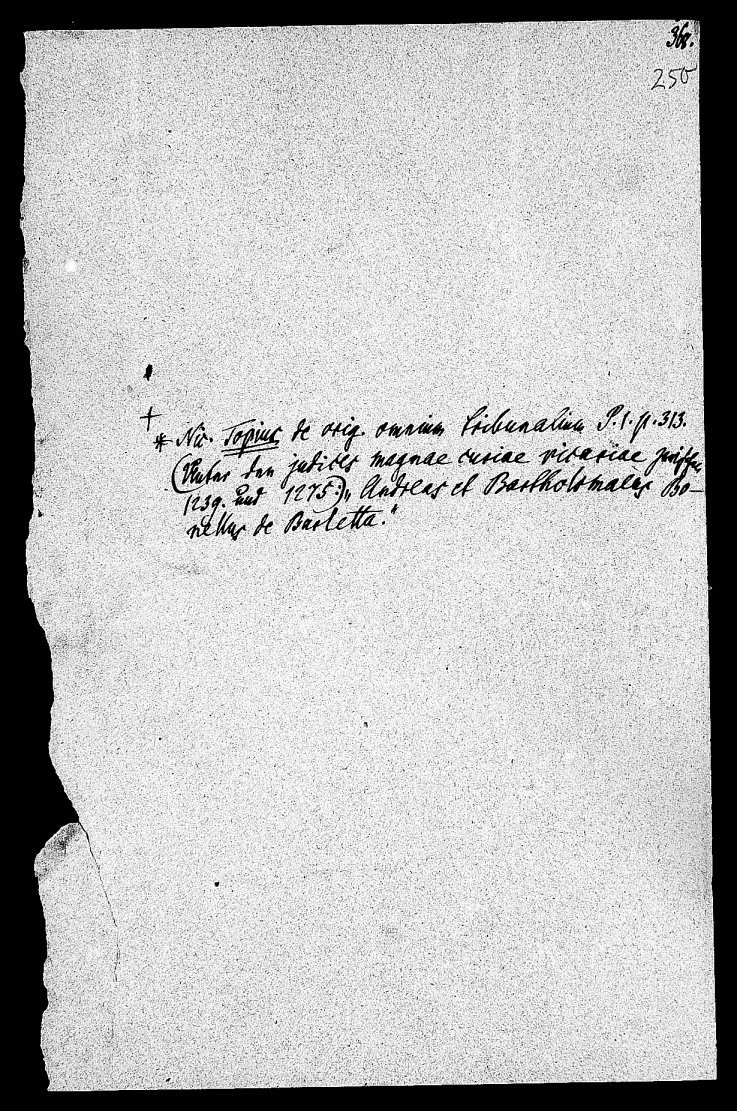 368.
250
+
* Nic. Topius de orig. omnium tribunalium P. 1. p. 313.
(Unter den judices magnae curiae vicariae zwischen
1239. und 1275.) „Andreas et Bartholomaeus Bo-
nellus de Barletta."